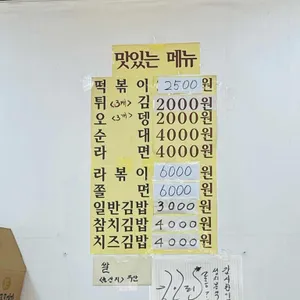 맛있는 메뉴
떡볶이 2500원
튀<3개>김 2000원
오<3개>뎅 2000원
순대 4000원
라면 4000원
라볶이 6000원
쫄면 6000원
일반김밥 3000원
참치김밥 4000원
치즈김밥 4000원
쌀